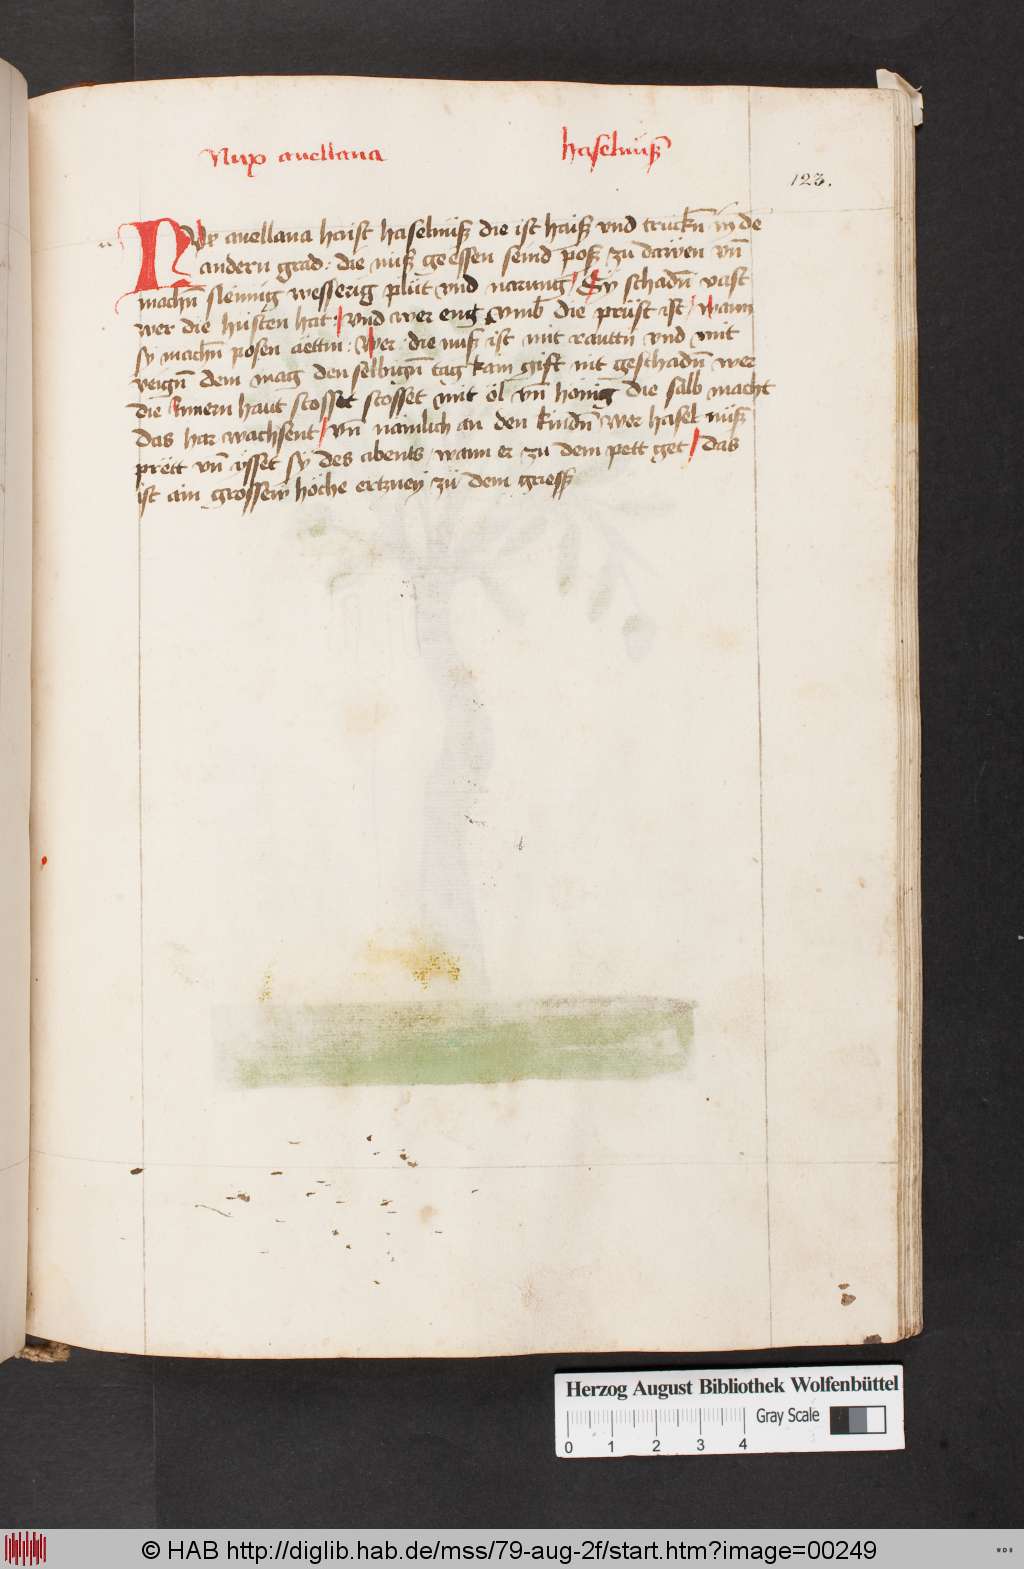 Nux avellana haselnuß
123.
Nux avellana haist haselnuß die ist haiß vnd truckn̄ in de
andern grad · die nuß geessen seind poß zu dawen vn̄
machn̄ sleimig wesserig plut vnd narung / Sy schadn̄ vast
wer die husten hat / vnd wer eng vmb die prust ist / wann
sy machn̄ posen aettm · Wer die nuß ist mit rauttn vnd mit
veign̄ dem mag den selbign̄ tag kain gift nit geschadn̄ wer
die Innern haut stosset stosset mit öl vn̄ honig die salb macht
das har wachsent / vn̄ namlich an den kindn̄ wer hasel nuß
prëtt vn̄ ysset sy des abents wann er zu dem pett get / das
ist ain grossew höche ertzney zu dem griess
Herzog August Bibliothek Wolfenbüttel
Gray Scale
0 1 2 3 4
© HAB http://diglib.hab.de/mss/79-aug-2f/start.htm?image=00249